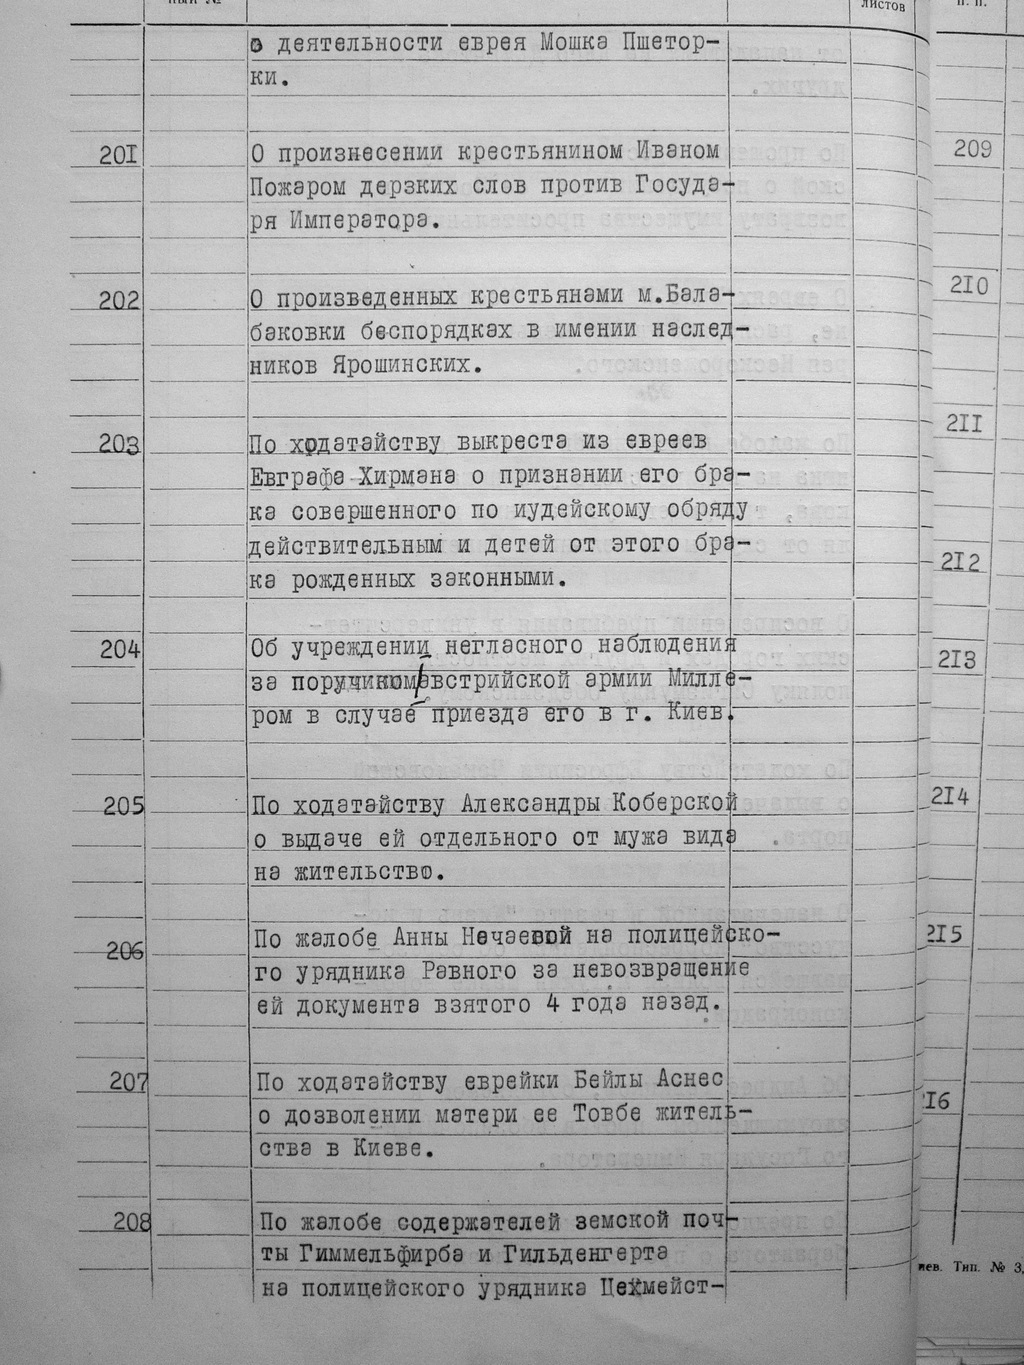 листов
п. п.
о деятельности еврея Мошка Пшетор-
ки.
201 О произнесении крестьянином Иваном
Пожаром дерзких слов против Госуда-
ря Императора.
202 О произведенных крестьянами м.Бала-
баковки беспорядках в имении наслед-
ников Ярошинских.
203 По ходатайству выкреста из евреев
Евграфа Хирмана о признании его бра-
ка совершенного по иудейскому обряду
действительным и детей от этого бра-
ка рожденных законными.
204 Об учреждении негласного наблюдения
за поручиком австрийской армии Милле-
ром в случае приезда его в г. Киев.
205 По ходатайству Александры Коберской
о выдаче ей отдельного от мужа вида
на жительство.
206 По жалобе Анны Нечаевой на полицейско-
го урядника Равного за невозвращение
ей документа взятого 4 года назад.
207 По ходатайству еврейки Бейлы Аснес
о дозволении матери ее Товбе житель-
ства в Киеве.
208 По жалобе содержателей земской поч-
ты Гиммельфирба и Гильденгерта
на полицейского урядника Цехмейст-
209
210
211
212
213
214
215
216
иев. Тип. № 3,